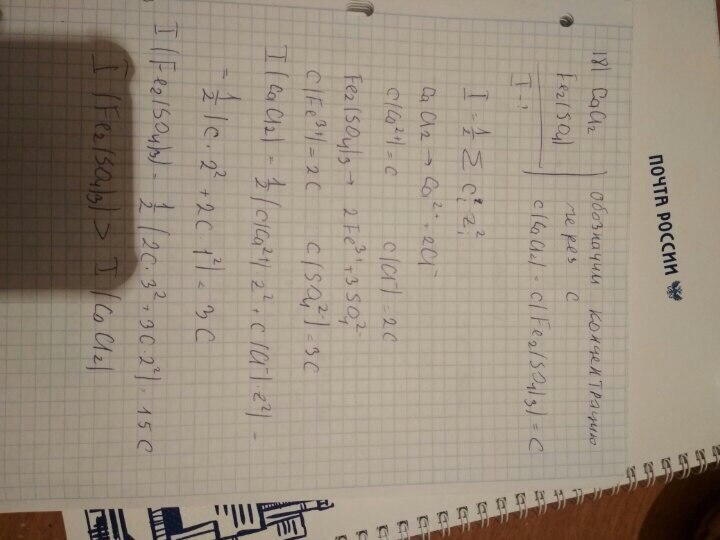 18) CaCl2 Обозначим концентрацию
Fe2(SO4) через C
I - ? C(CaCl2) = C(Fe2(SO4)3) = C
I = 1/2 Σ Ci² Zi²
CaCl2 → Ca²⁺ + 2Cl⁻
C(Ca²⁺) = C C(Cl⁻) = 2C
Fe2(SO4)3 → 2Fe³⁺ + 3SO4²⁻
C(Fe³⁺) = 2C C(SO4²⁻) = 3C
I(CaCl2) = 1/2 (C(Ca²⁺) z² + C(Cl⁻)·z²) =
= 1/2 (C·2² + 2C·1²) = 3C
I(Fe2(SO4)3) = 1/2 (2C·3² + 3C·2²) = 15C
I(Fe2(SO4)3) > I(CaCl2)
ПОЧТА РОССИИ